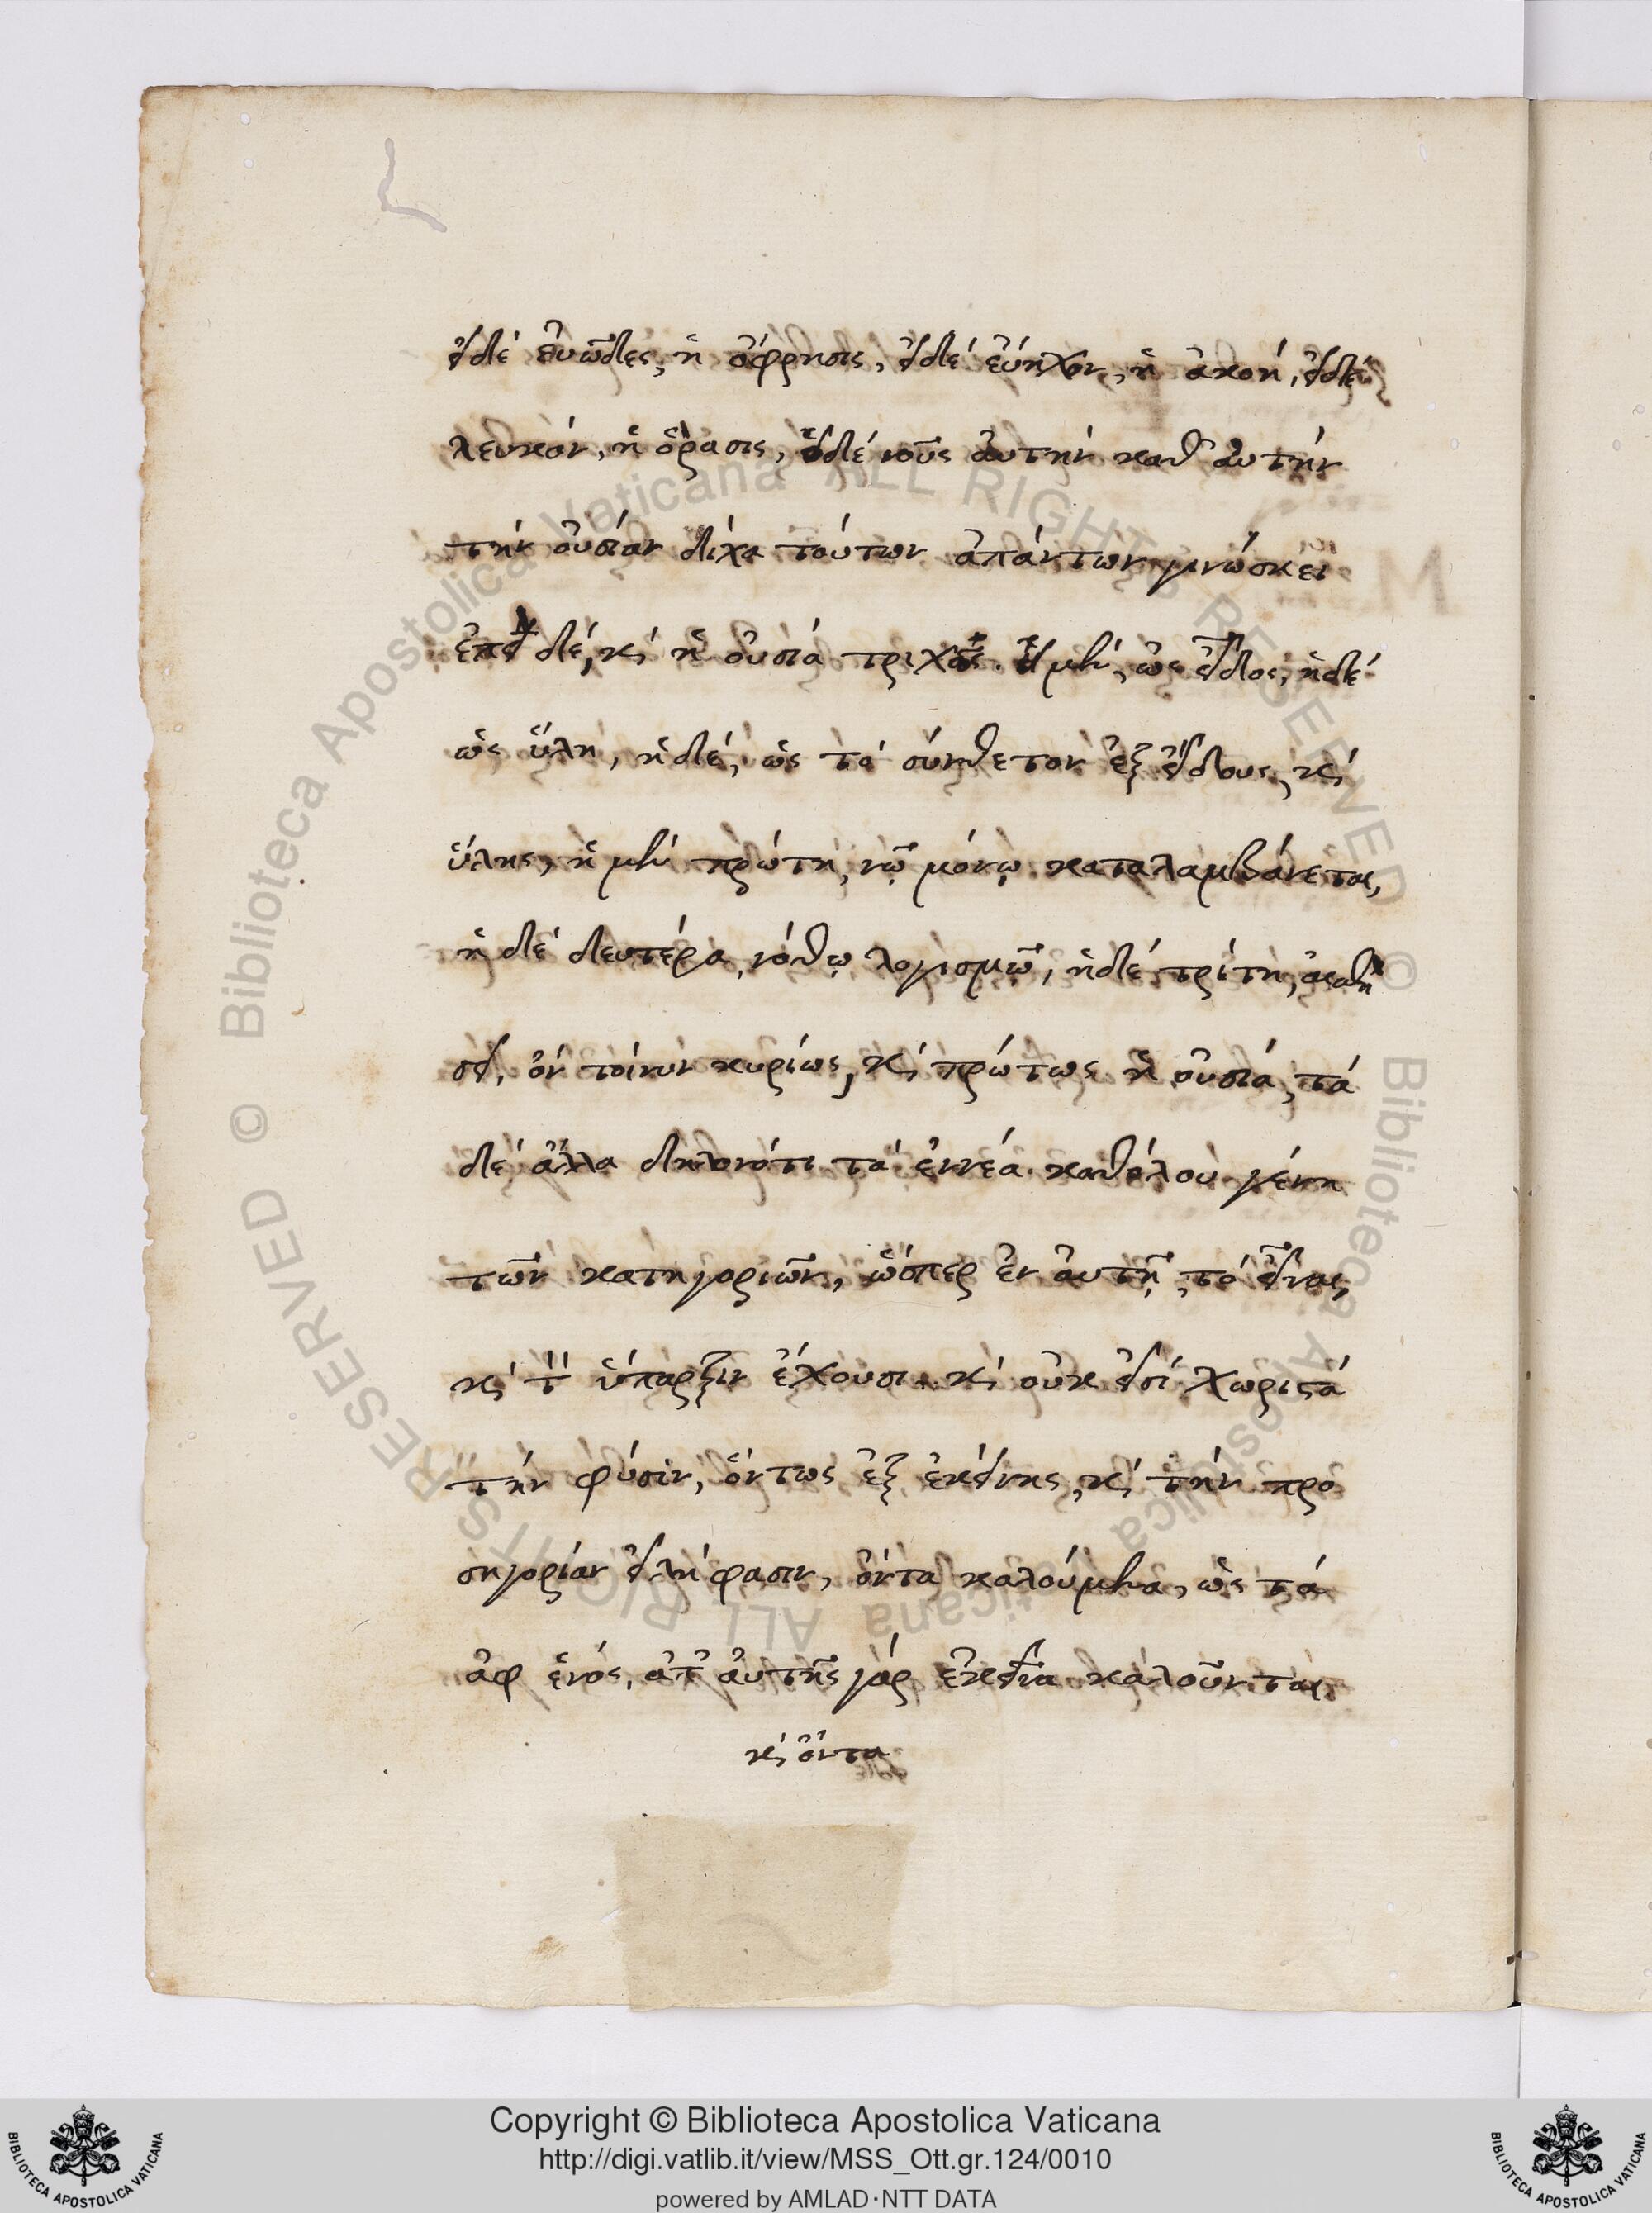 εἰ δὲ εὐῶδες, ἡ ὄφρησις, εἰ δὲ εὔηχον, ἡ ἀκοή, εἰ δὲ
λευκὸν, ἡ ὅρασις, οὐδὲ νοῦς αὐτὴν καθ' αὑτὴν
τὴν οὐσίαν δίχα τούτων ἁπάντων γινώσκει
ἐπεὶ δὲ, κ̀ ἡ οὐσία τριχῶς. ἡ μὲν, ὡς εἶδος, ἡ δὲ
ὡς ὕλη, ἡ δὲ, ὡς τὸ σύνθετον ἐξ εἴδους, κ̀
ὕλης, ἡ μὲν πρώτη, νῷ μόνῳ καταλαμβάνεται,
ἡ δὲ δευτέρα, νόθῳ λογισμῷ, ἡ δὲ τρίτη, αἰσθή
σει, ὂν τοίνυν κυρίως, κ̀ πρώτως ἡ οὐσία, τὰ
δὲ ἄλλα δηλονότι τὰ ἐννέα καθόλου γένη
τῶν κατηγοριῶν, ὥσπερ ἐν αὐτῇ, τὸ εἶναι,
κ̀ τὴν ὕπαρξιν ἔχουσι κ̀ οὐκ εἰσὶ χωριστὰ
τὴν φύσιν, ὄντως ἐξ ἐκείνης, κ̀ τὴν προ
σηγορίαν εἰλήφασιν, ὄντα καλούμενα, ὡς τὰ
ἀφ ἑνός, ἀπ' αὐτῆς γὰρ ἐκεῖνα καλοῦνται
κ̀ ὄντα
Copyright © Biblioteca Apostolica Vaticana
http://digi.vatlib.it/view/MSS_Ott.gr.124/0010
powered by AMLAD·NTT DATA
BIBLIOTECA APOSTOLICA VATICANA
BIBLIOTECA APOSTOLICA VATICANA